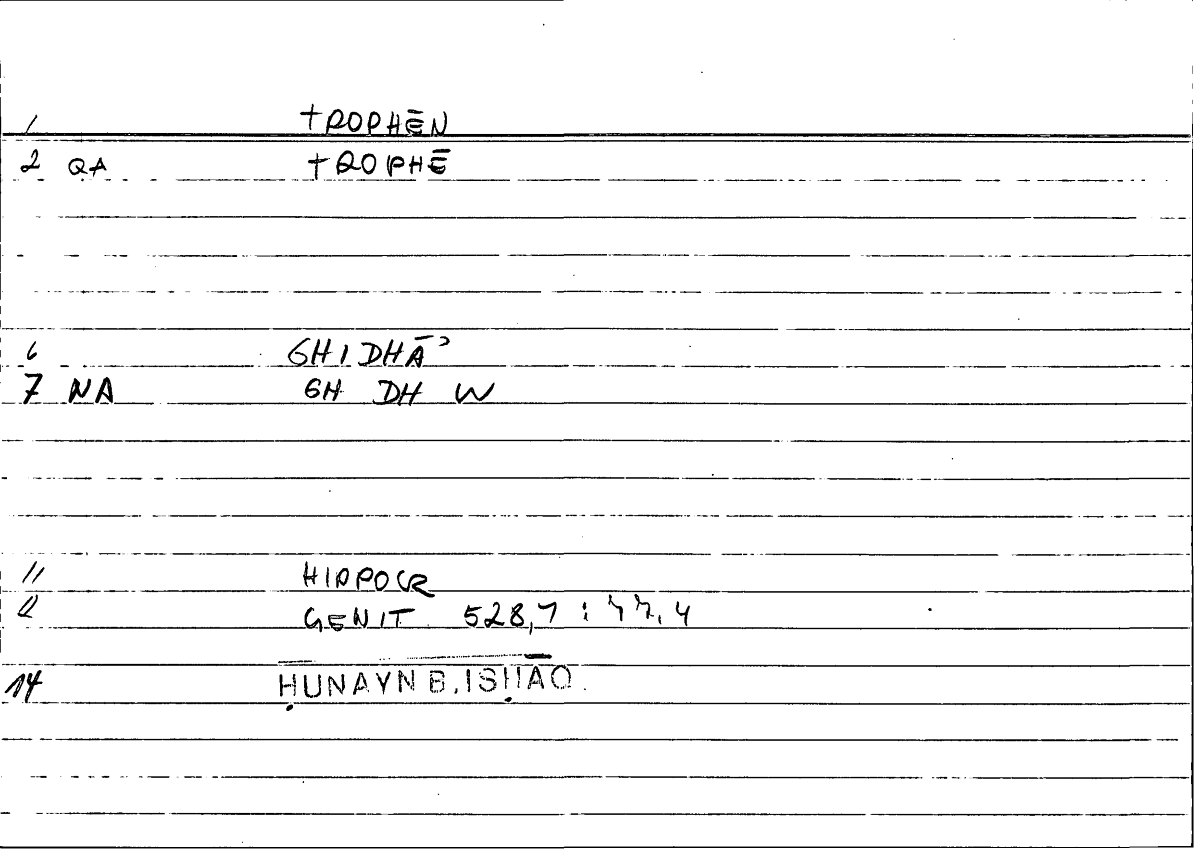 1 TROPHĒN
2 QA TROPHĒ
6 GHIDHĀʾ
7 NA GH DH W
11 HIPPOCR
12 GENIT 528,7 :
14 ḤUNAYN B. ISḤĀQ